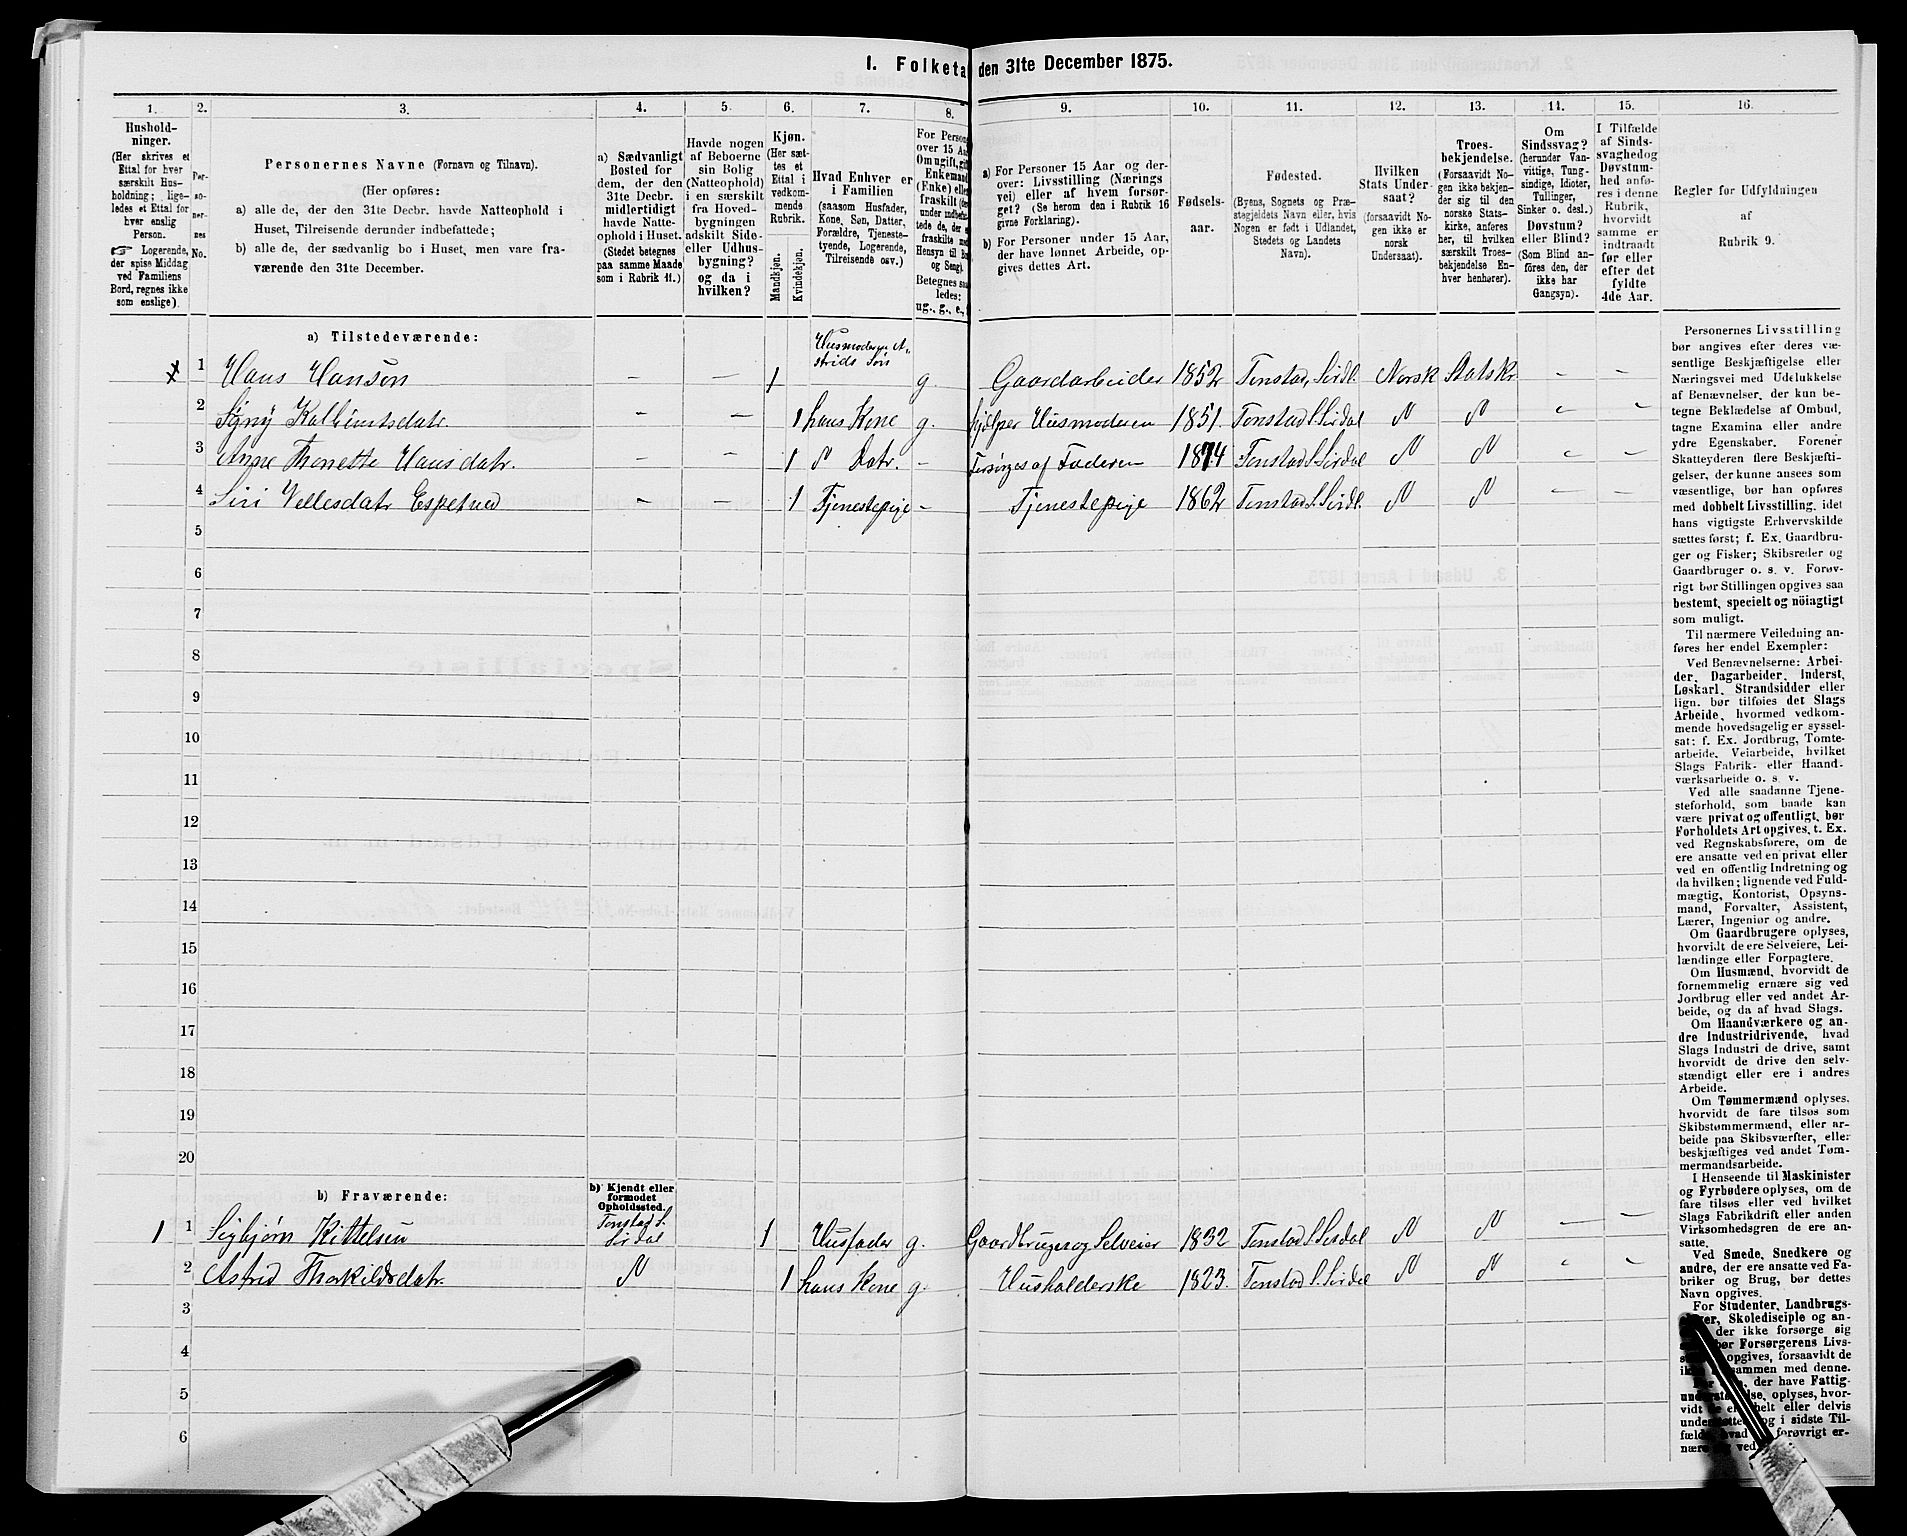 1. Folketa den 31te December 1875.
1. 2. 3. 4. 5. 6. 7. 8. 9. 10. 11. 12. 13. 14. 15. 16.
Hushold-
ninger.
(Her skrives et
Ettal for hver
særskilt Hus-
holdning; lige-
ledes et Ettal for
hver enslig
Person.
☞ Logerende,
der spise Middag
ved Familiens
Bord, regnes ikke
som enslige).
Per-
so-
ner-
nes
No.
Personernes Navne (Fornavn og Tilnavn).
(Her opføres:
a) alle de, der den 31te Decbr. havde Natteophold i
Huset, Tilreisende derunder indbefattede;
b) alle de, der sædvanlig bo i Huset, men vare fra-
værende den 31te December.
a) Sædvanligt
Bosted for
dem, der den
31te Decbr.
midlertidigt
havde Natte-
ophold i Huset.
(Stedet betegnes
paa samme Maade
som i Rubrik 11.)
Havde nogen
af Beboerne
sin Bolig
(Natteophold)
i en særskilt
fra Hoved-
bygningen
adskilt Side-
eller Udhus-
bygning?
og da i
hvilken?
Kjøn.
(Her sæt-
tes et
Ettal i
vedkom-
mende
Rubrik.
Mandkjøn.
Kvindekjøn.
Hvad Enhver er
i Familien
(saasom Husfader,
Kone, Søn, Datter,
Forældre, Tjeneste-
tyende, Logerende,
Tilreisende osv.)
For Person
over 15 Aa
Om ugift, gif
Enkemand
(Enke) elle
fraskilt (der
under indbefat-
tede de, der e
fraskilte med
Hensyn til Bo
og Seng).
Betegnes saa
ledes:
ug., g., e.,
a) For Personer 15 Aar og der-
over: Livsstilling (Nærings
vei) eller af hvem forsør-
get? (Se herom den i Rubrik 16
givne Forklaring).
b) For Personer under 15 Aar,
der have lønnet Arbeide, op-
gives dettes Art.
Fødsels-
aar.
Fødested.
(Byens, Sognets og Præ-
stegjeldets Navn eller, hvis
Nogen er født i Udlandet,
Stedets og Landets
Navn).
Hvilken
Stats Under-
saat?
(forsaavidt No-
gen ikke er
norsk
Undersaat).
Troes-
bekjendelse.
(Forsaavidt No-
gen ikke bekjen-
der sig til den
norske Stats-
kirke, anføres
her, til hvilken
særskilt Troes-
bekjendelse En-
hver henhører).
Om
Sindssvag?
(herunder Van-
vittige, Tung-
sindige, Idioter,
Tullinger,
Sinker o. desl.)
Døvstum?
eller Blind?
(Som Blind an-
føres den, der
ikke har
Gangsyn).
I Tilfælde
af Sinds-
svaghed og
Døvstum-
hed anfø-
res i denne
Rubrik,
hvorvidt
samme er
indtraadt
før eller
efter det
fyldte
4de Aar.
Regler for Udfyldningen
af
Rubrik 9.
a) Tilstedeværende:
1 Hans Hanson – – 1 Husmoderen A-
strids Søn g Gaardarbeider 1852 Tonstad, Sirdl. Norsk Statskr – –
2 Signy Kolbentsdatr. – – 1 hans Kone g. hjelper Husmoderen 1851. Tonstad S. Sirdal " " – –
3 Anne Thonette Hansdatr. – – 1 " Datr. – Forsørges af Faderen 1874 Tonstad S. Sirdal " " – –
4 Siri Vellesdatr Espetved – – 1 Tjenestepige – Tjenestepige 1862 Tonstad S. Sirdl. " " – –
5
6
7
8
9
10
11
12
13
14
15
16
17
18
19
20
b) Fraværende:
b) Kjendt eller
formodet
Opholdssted.
1 1 Sigbjørn Kittelsen Tonstad S.
Sirdal 1 Husfader g. Gaardbruger og Selveier 1832 Tonstad S. Sirdal " " – –
2 Astrid Thorkildsdatr. " 1 hans Kone g. Husholderske 1823. Tonstad S. Sirdal " " – –
3
4
5
6
Personernes Livsstilling
bør angives efter deres væ-
sentlige Beskjæftigelse eller
Næringsvei med Udelukkelse
af Benævnelser, der kun be-
tegne Beklædelse af Ombud,
tagne Examina eller andre
ydre Egenskaber. Forener
Skatteyderen flere Beskjæfti-
gelser, der kunne ansees som
væsentlige, bør han opføres
med dobbelt Livsstilling, idet
hans vigtigste Erhvervskilde
sættes først; f. Ex. Gaardbru-
ger og Fisker; Skibsreder og
Gaardbruger o. s. v. Forøv-
rigt bør Stillingen opgives saa
bestemt, specielt og nöiagtigt
som muligt.
Til nærmere Veiledning an-
føres her endel Exempler:
Ved Benævnelserne: Arbei-
der, Dagarbeider, Inderst,
Løskarl, Strandsidder eller
lign. bør tilføies det Slags
Arbeide, hvormed vedkom-
mende hovedsagelig er syssel-
sat; f. Ex. Jordbrug, Tomte-
arbeide, Veiarbeide, hvilket
Slags Fabrik- eller Haand-
værksarbeide o. s. v.
Ved alle saadanne Tjene-
steforhold, som baade kan
være privat og offentligt, bør
Forholdets Art opgives, t. Ex.
ved Regnskabsførere, om de
ere ansatte ved en privat eller
ved en offentlig Indretning og
da hvilken; lignende ved Fuld-
mægtig, Kontorist, Opsyns-
mand, Forvalter, Assistent,
Lærer, Ingeniør og andre.
Om Gaardbrugere oplyses,
hvorvidt de ere Selveiere, Lei-
lændinge eller Forpagtere.
Om Husmænd, hvorvidt de
fornemmelig ernære sig ved
Jordbrug eller ved andet Ar-
beide, og da af hvad Slags.
Om Haandværkere og an-
dre Industridrivende, hvad
Slags Industri de drive, samt
hvorvidt de drive den selv-
stændigt eller ere i andres
Arbeide.
Om Tømmermænd oplyses,
hvorvidt de fare tilsøs som
Skibstømmermænd, eller ar-
beide paa Skibsværfter, eller
beskjæftiges ved andet Tøm-
mermandsarbeide.
I Henseende til Maskinister
og Fyrbødere oplyses, om de
fare tilsøs eller ved hvilket
Slags Fabrikdrift eller anden
Virksomhedsgren de ere an-
satte.
Ved Smede, Snedkere og
andre, der ere ansatte ved Fa-
briker og Brug, bør dettes
Navn opgives.
For Studenter, Landbrugs-
Skoledisciple og an-
der ikke forsørge sig
bør Forsørgerens Livs-
opgives, forsaavidt de
sammen med denne.
der have Fattig-
oplyses, hvor-
helt eller delvis
og i sidste Til-
hvad forøvrigt er-
ved